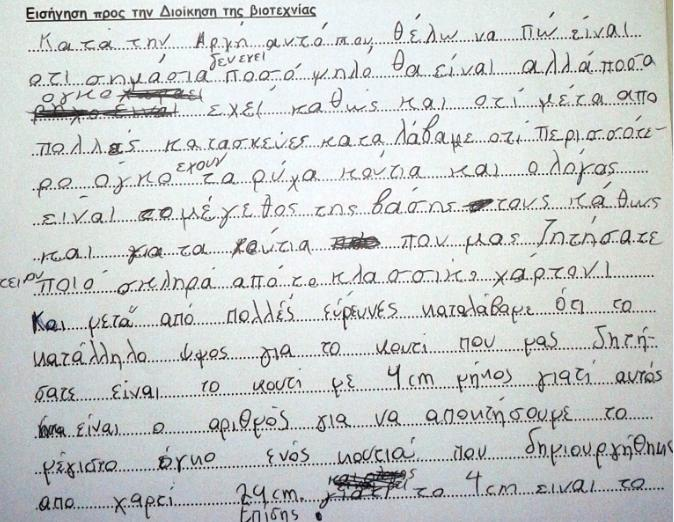 Εισήγηση προς την Διοίκηση της βιοτεχνίας
Κατά την Αρχή αυτό που θέλω να πώ είναι
οτι σημάσια δεν εχει ποσό ψηλό θα είναι αλλά ποσα
ογκο εχεί καθώς και οτί μέτα απο
πολλές κατασκεύες κατα λάβαμε οτί περισσότε-
ρο όγκο εχουν τα ρύχα κούτια και ο λόγος
είναι το μέγεθος της βάσης τους κάθως
και για τα κούτια που μας ζητήσατε
ποιό σκληρά από το κλασσικό χάρτονι
Και μετά από πολλές εύρευνες καταλάβαμε ότι το
κατάλληλο ύψος για το κουτί που μας ζητή-
σατε είναι το κουτί με 4cm μήκος γιατί αυτός
είναι ο αριθμός για να αποκτήσουμε το
μέγιστο όγκο ενός κουτιού που δημιουργήθηκε
απο χαρτί 24cm. Επίσης το 4cm ειναι το